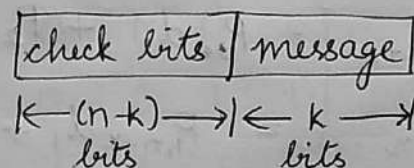 check bits. message
(n-k) k
bits bits